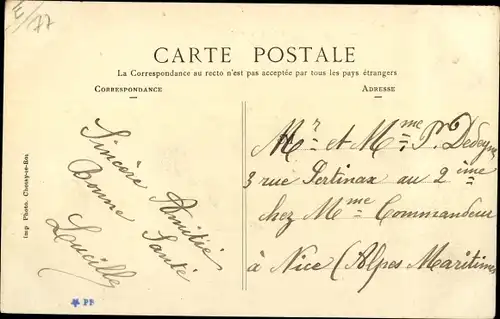 E/77
CARTE POSTALE
La Correspondance au recto n'est pas acceptée par tous les pays étrangers
CORRESPONDANCE
ADRESSE
Sincère Amitié
Bonne Santé
Lucille
Mr et Mme P. Dedeyn
3 rue Pertinax au 2ième
chez Mme Commandeur
à Nice (Alpes Maritimes
Imp. Photo. Choisy-le-Roi
PF